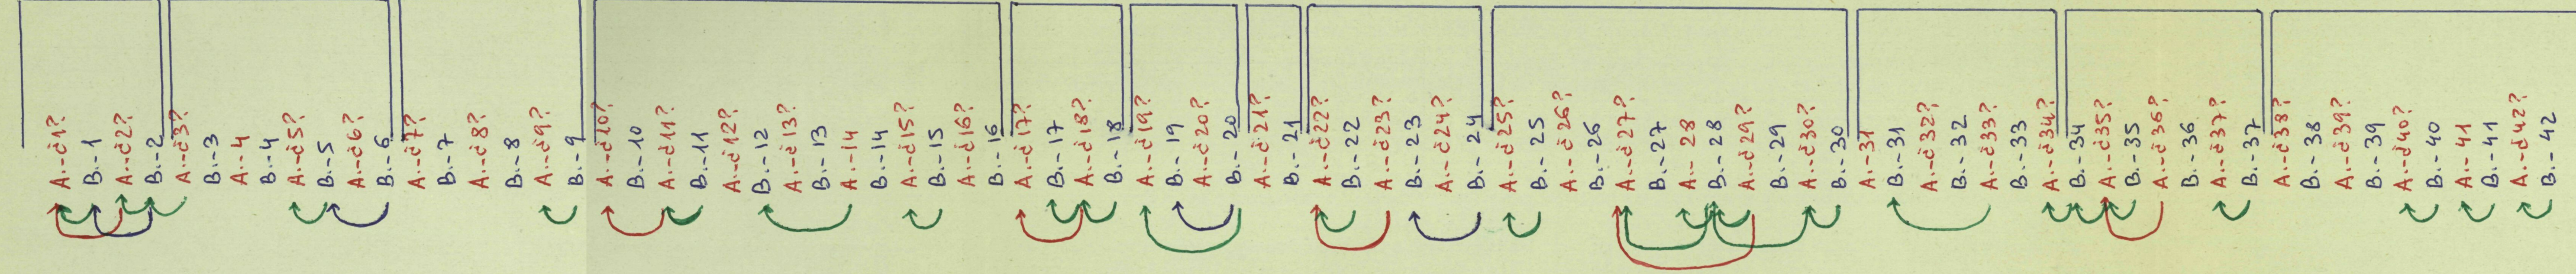 A.-¿1?
B.-1
A.-¿2?
B.-2
A.-¿3?
B.-3
A.-4
B.-4
A.-¿5?
B.-5
A.-¿6?
B.-6
A.-¿7?
B.-7
A.-¿8?
B.-8
A.-¿9?
B.-9
A.-¿10?
B.-10
A.-¿11?
B.-11
A.-¿12?
B.-12
A.-¿13?
B.-13
A.-14
B.-14
A.-¿15?
B.-15
A.-¿16?
B.-16
A.-¿17?
B.-17
A.-¿18?
B.-18
A.-¿19?
B.-19
A.-¿20?
B.-20
A.-¿21?
B.-21
A.-¿22?
B.-22
A.-¿23?
B.-23
A.-¿24?
B.-24
A.-¿25?
B.-25
A.-¿26?
B.-26
A.-¿27?
B.-27
A.-28
B.-28
A.-¿29?
B.-29
A.-¿30?
B.-30
A.-31
B.-31
A.-¿32?
B.-32
A.-¿33?
B.-33
A.-¿34?
B.-34
A.-¿35?
B.-35
A.-¿36?
B.-36
A.-¿37?
B.-37
A.-¿38?
B.-38
A.-¿39?
B.-39
A.-¿40?
B.-40
A.-41
B.-41
A.-¿42?
B.-42